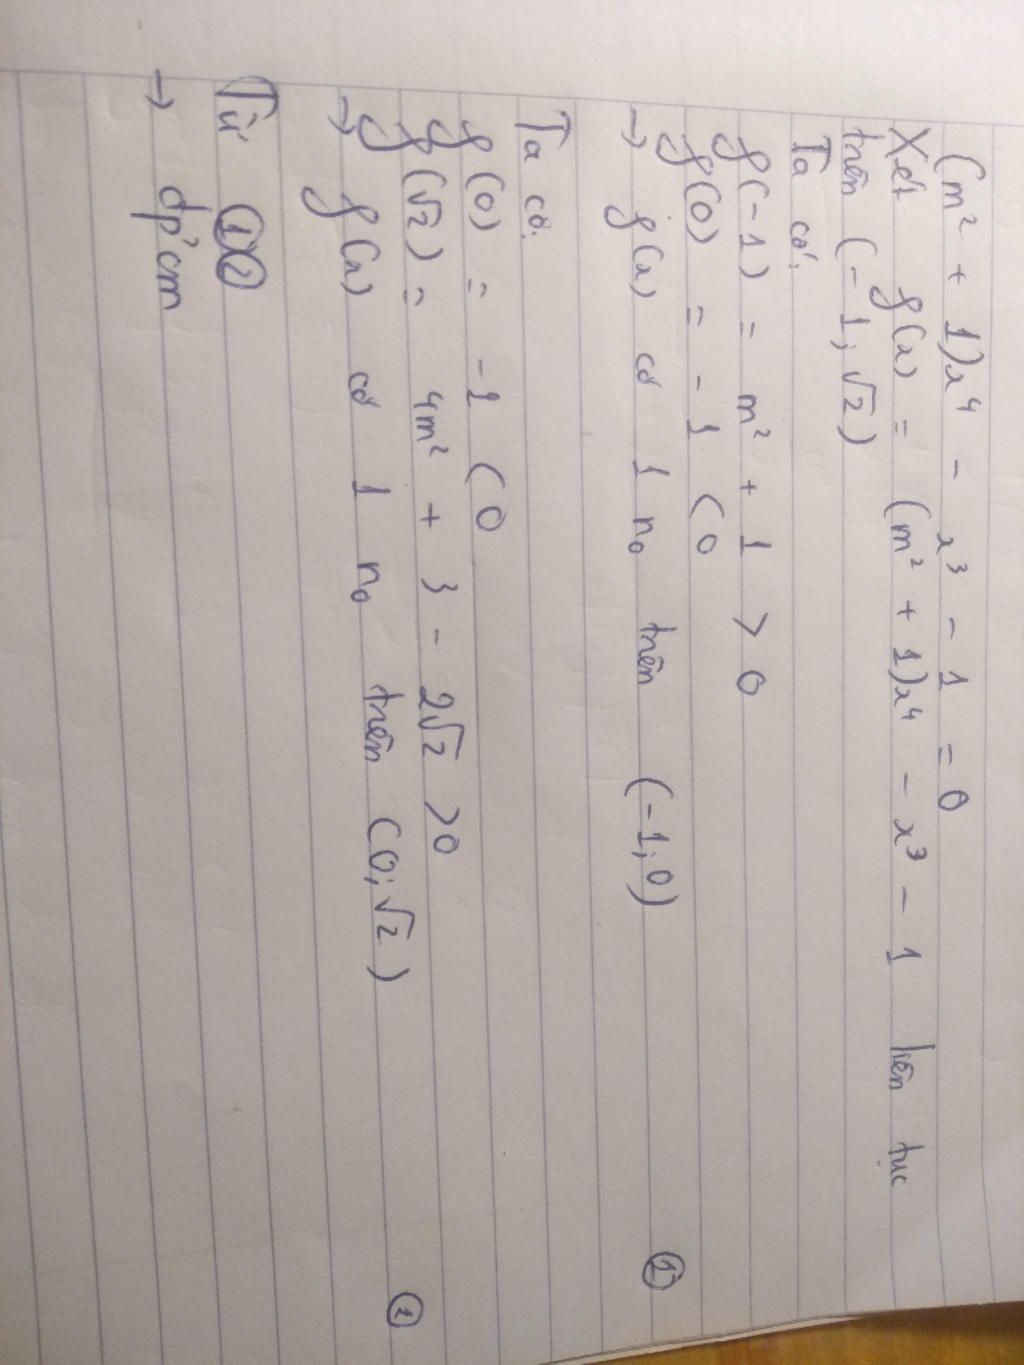 (m² + 1)x⁴ - x³ - 1 = 0
Xét f(x) = (m² + 1)x⁴ - x³ - 1 liên tục
trên (-1; √2)
Ta có:
f(-1) = m² + 1 > 0
f(0) = -1 < 0
→ f(x) có 1 n₀ trên (-1; 0) ①
Ta có:
f(0) = -1 < 0
f(√2) = 4m² + 3 - 2√2 > 0
→ f(x) có 1 n₀ trên (0; √2) ②
Từ ①②
→ đpcm